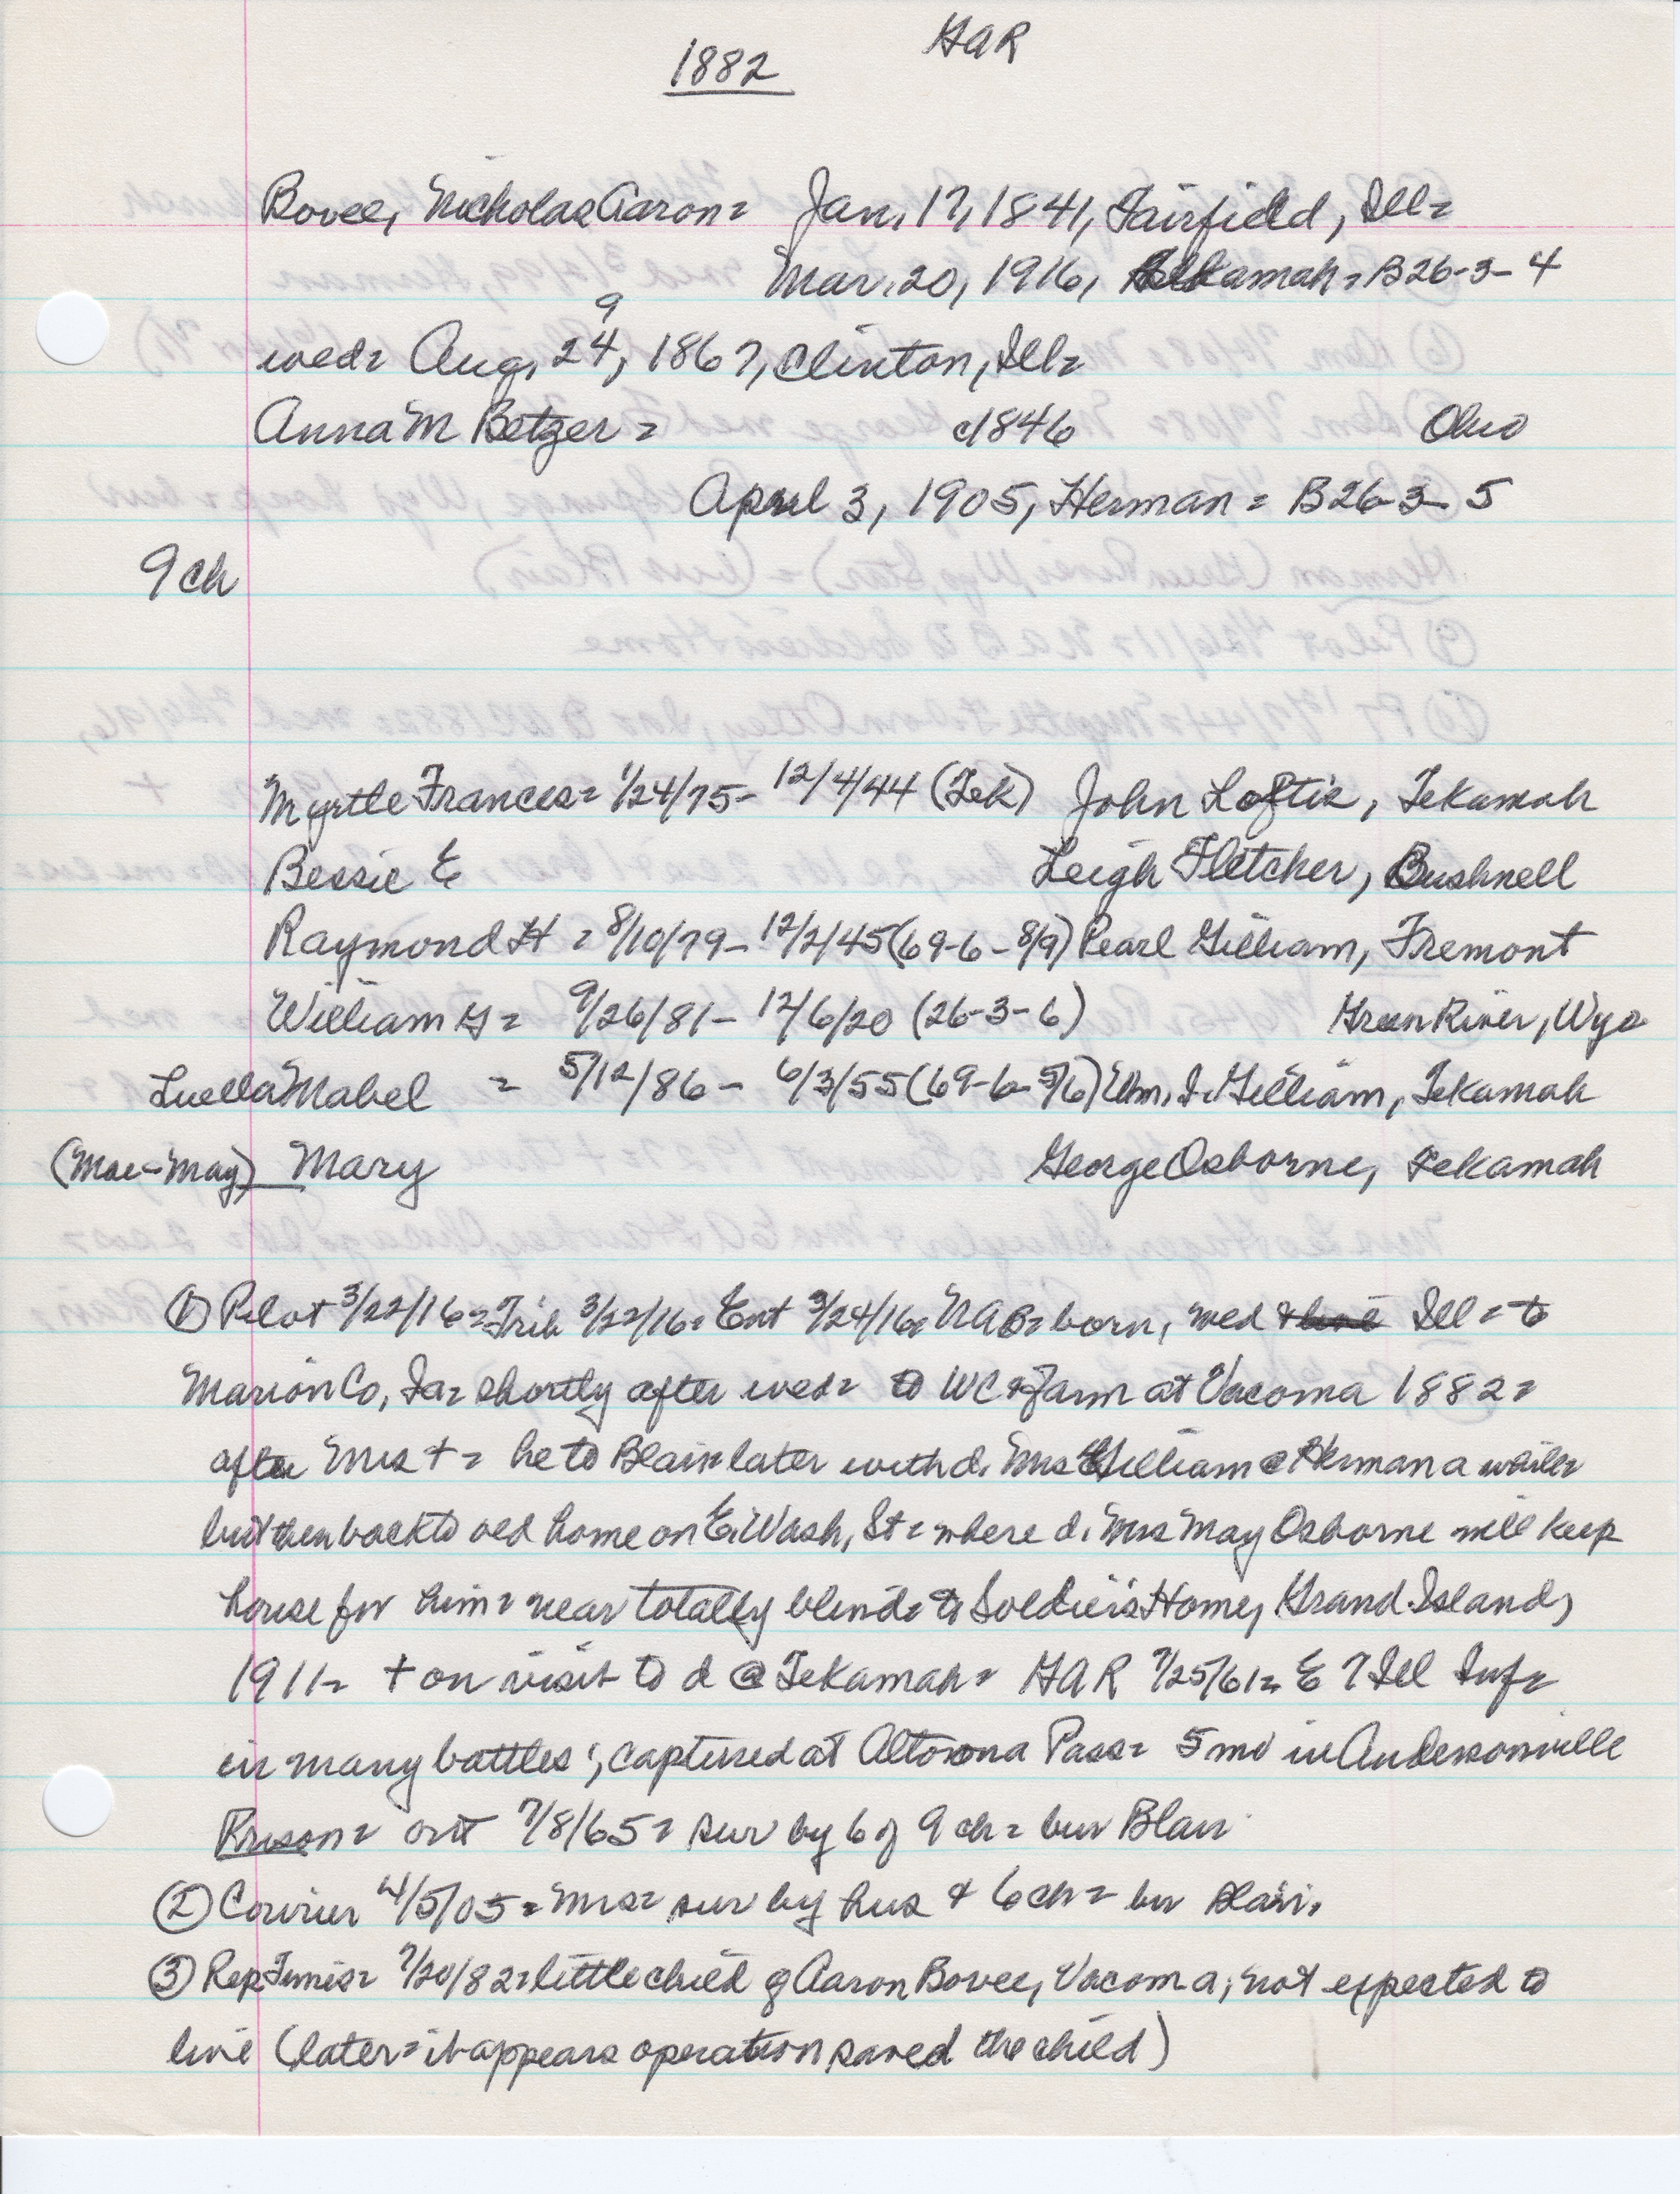 GAR
1882
Bovee, Nicholas Aaron= Jan, 17, 1841, Fairfield, Ill=
Mar. 20, 1916, Tekamah= B26-3-4
9
wed= Aug, 24, 1867, Clinton, Ill=
Anna M Betzer= c1846 Ohio
April 3, 1905, Herman= B26-3-5
9 ch
Myrtle Frances= 1/24/75- 12/4/44 (Tek) John Loftis, Tekamah
Bessie E Leigh Fletcher, Bushnell
Raymond H = 8/10/79- 12/2/45 (69-6-8/9) Pearl Gilliam, Fremont
William G= 9/26/81- 12/6/20 (26-3-6) Green River, Wyo
Luella Mabel = 5/12/86- 6/3/55 (69-6-5/6) Wm. I. Gilliam, Tekamah
(Mae-May) Mary George Osborne, Tekamah
① Pilot 3/22/16= Trib 3/22/16= Ent 3/24/16= NAB= born, wed Ill= to
Marion Co, Ia= shortly after wed= to WC & farm at Vacoma 1882=
after Mrs += he to Blair= later with d. Mrs Gilliam @ Herman a while=
but then back to old home on E. Wash, St= where d. Mrs May Osborne will keep
house for him= near totally blind= to Soldier's Home, Grand Island,
1911= + on visit to d @ Tekamah= GAR 7/25/61= E 7 Ill Inf=
in many battles; captured at Altoona Pass= 5 mo in Andersonville
Prison= out 7/8/65= sur by 6 of 9 ch= bur Blair
② Courier 4/5/05= Mrs= sur by hus & 6 ch= bur Blair.
③ Rep Times= 7/20/82= little child of Aaron Bovee, Vacoma, not expected to
live (later= it appears operation saved the child)